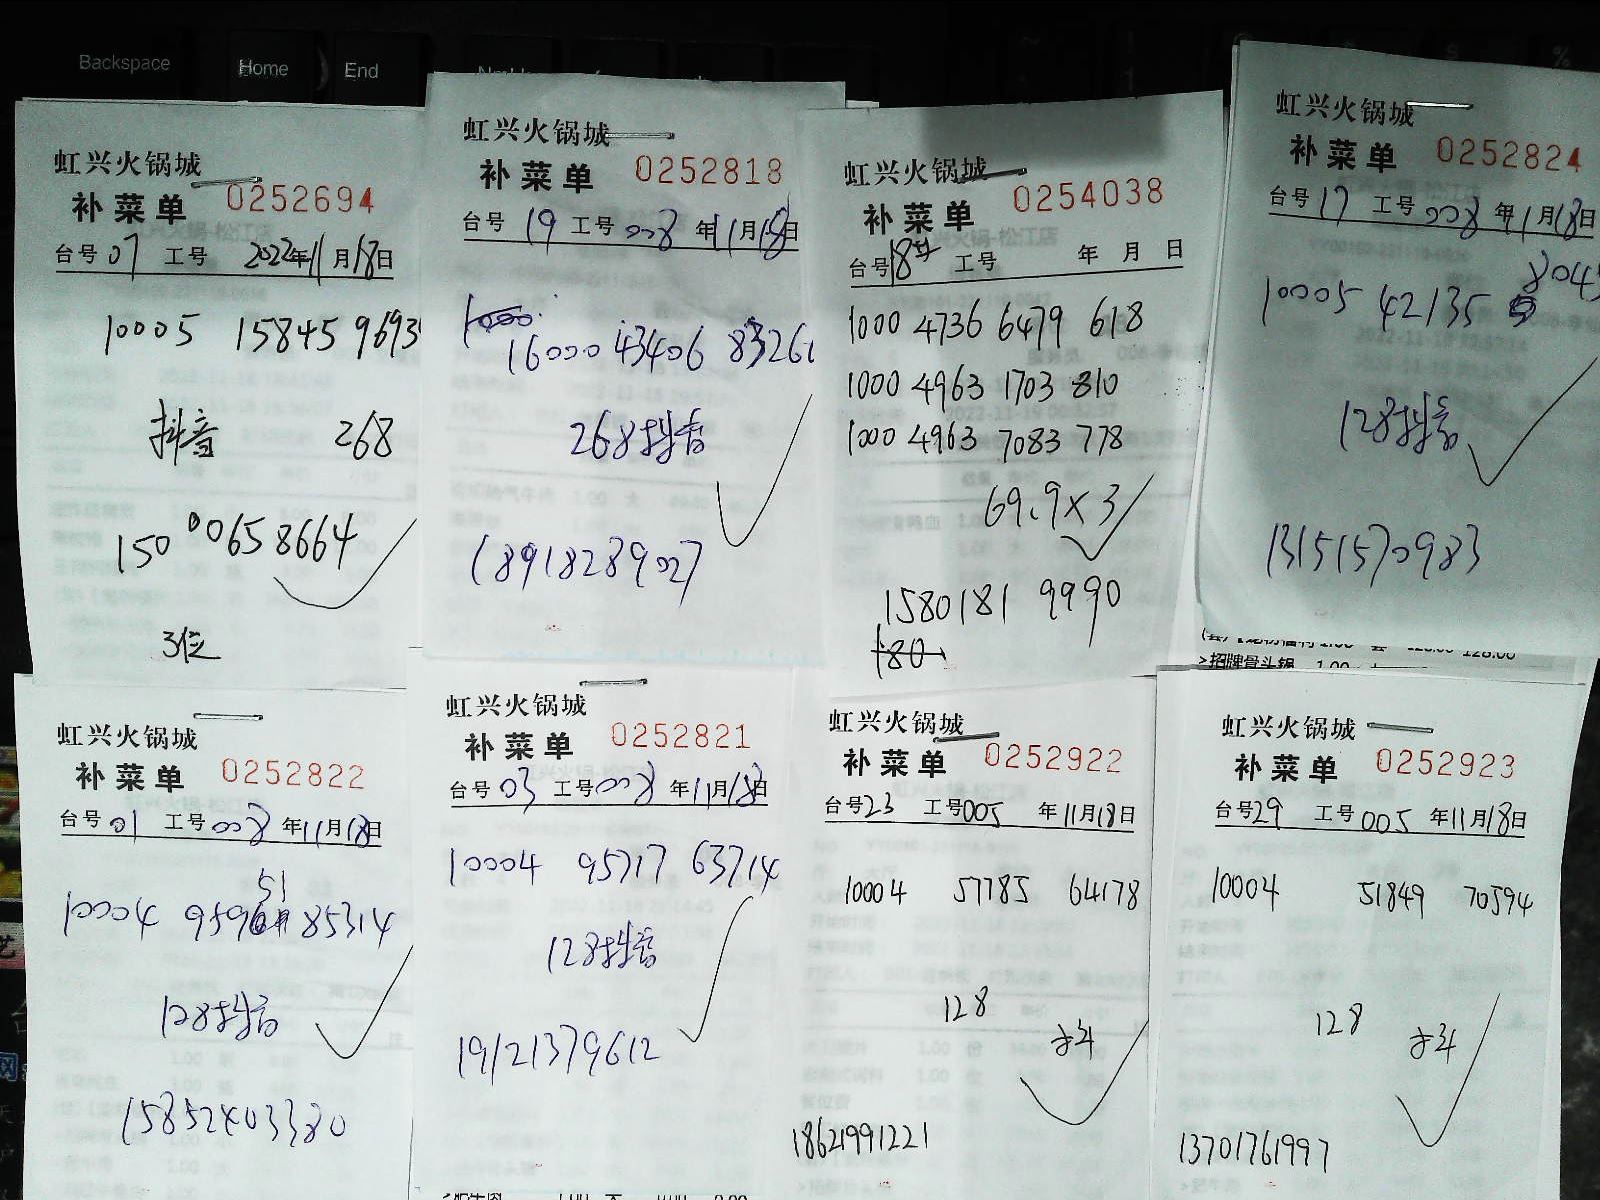 Backspace
Home
End
虹兴火锅城
补菜单 0252694
台号 07 工号 2022年11月18日
10005 15845 9693
抖音 268
150 00658664
3位
虹兴火锅城
补菜单 0252818
台号 19 工号 008 年11月18日
16000 43406 83261
268抖音
18918289027
虹兴火锅城
补菜单 0254038
台号 18 工号 年 月 日
1000 4736 6479 618
1000 4963 1703 810
1000 4963 7083 778
69.9×3
1580181 9990
180
虹兴火锅城
补菜单 0252824
台号 17 工号 008 年11月18日
8045
10005 42135
128抖音
13151570983
>招牌骨头锅 1.00
虹兴火锅城
补菜单 0252822
台号 01 工号 008 年11月18日
51
10004 959 85314
128抖音
15852403380
虹兴火锅城
补菜单 0252821
台号 03 工号 008 年11月18日
10004 95717 63714
128抖音
19121379612
虹兴火锅城
补菜单 0252922
台号 23 工号 005 年11月18日
10004 57785 64178
128
18621991221
虹兴火锅城
补菜单 0252923
台号 29 工号 005 年11月18日
10004 51849 70594
128
13701761997